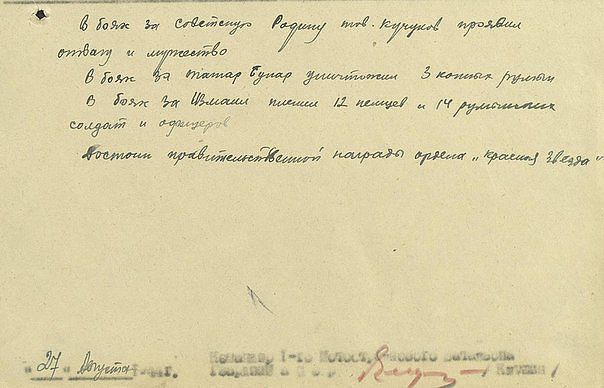 В боях за советскую Родину тов. Кучуков проявил
отвагу и мужество
В боях за Татар Бунар уничтожил 3 конных румын
В боях за Измаил пленил 12 немцев и 14 румынских
солдат и офицеров
Достоин правительственной награды ордена „Красная Звезда"
"27" Августа 44г.
Командир 1-го Батальона